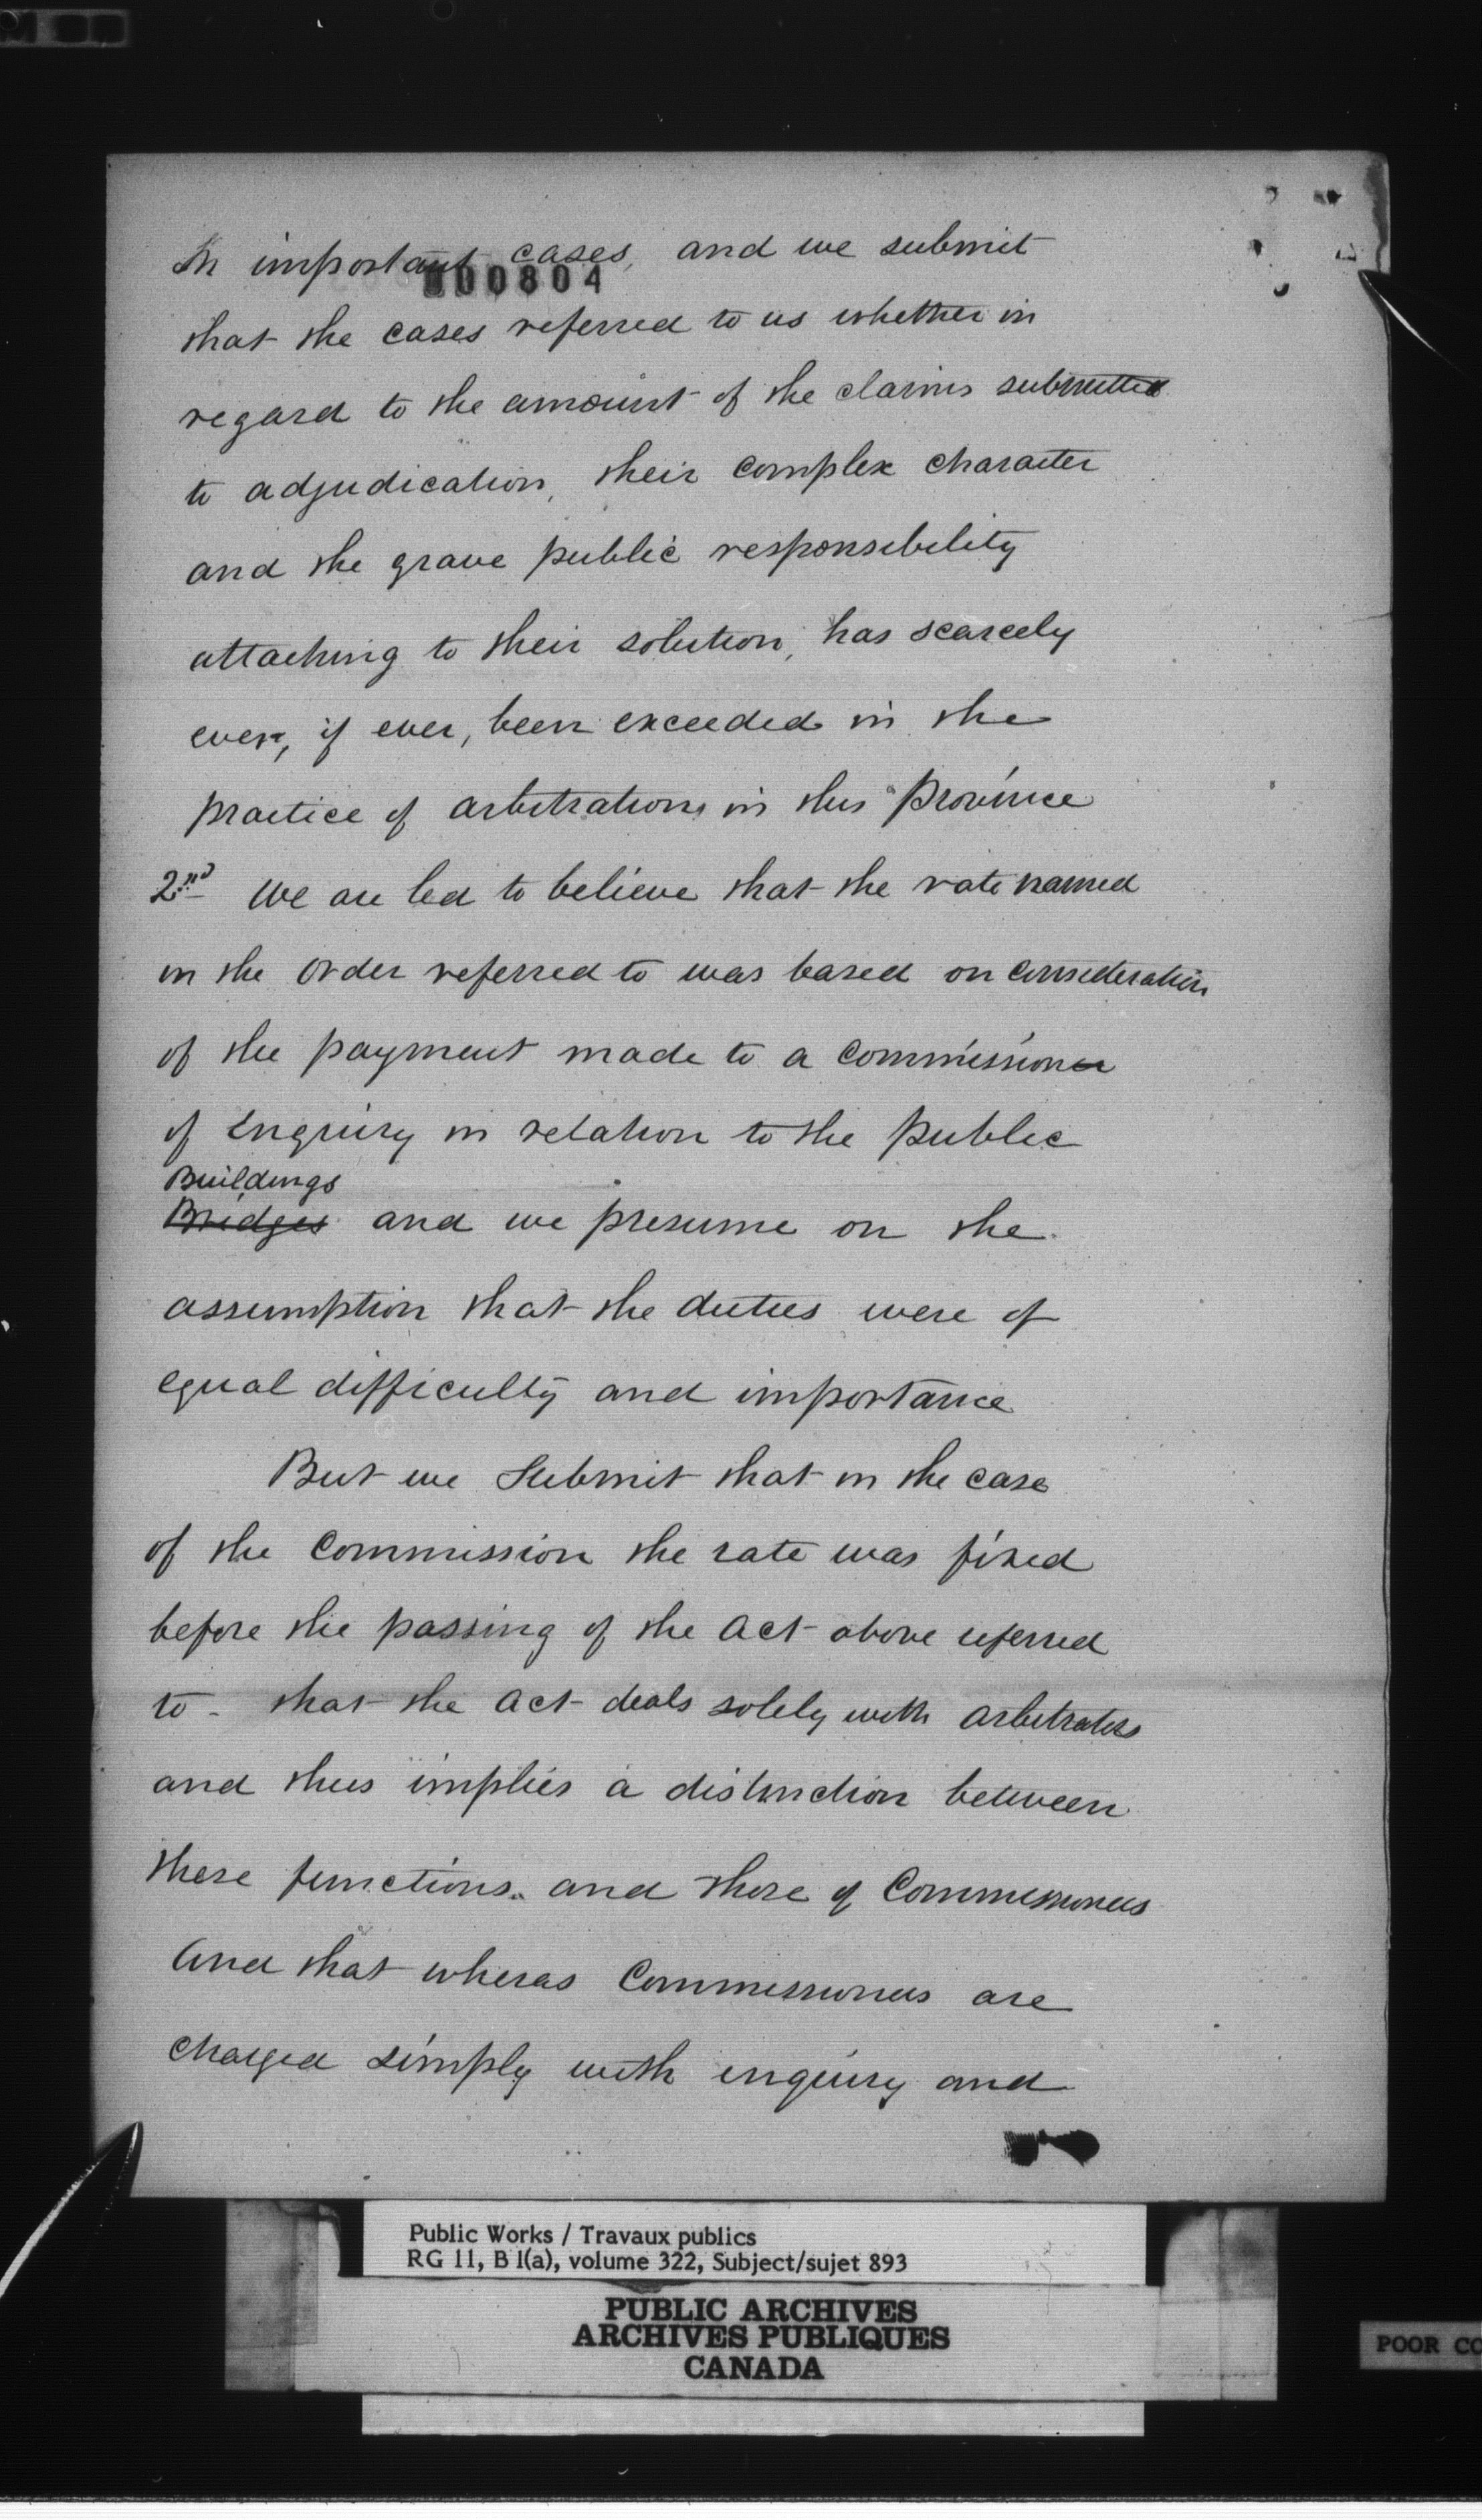 In important cases, and we submit
000804
that the cases referred to us whether in
regard to the amount of the claims submitted
to adjudication, their complex character
and the grave public responsibility
attaching to their solution, has scarcely
ever, if ever, been exceeded in the
practice of arbitrations in this Province
2nd We are led to believe that the rate named
in the order referred to was based on consideration
of the payment made to a Commissioner
of Enquiry in relation to the public
Buildings
Bridges and we presume on the
assumption that the duties were of
equal difficulty and importance
But we submit that in the case
of the Commission the rate was fixed
before the passing of the Act above referred
to - that the Act deals solely with arbitrators
and thus implies a distinction between
these functions and those of Commissioners
And that wheras Commissioners are
charged simply with inquiry and
Public Works / Travaux publics
RG 11, B 1(a), volume 322, Subject/sujet 893
PUBLIC ARCHIVES
ARCHIVES PUBLIQUES
CANADA
POOR CO